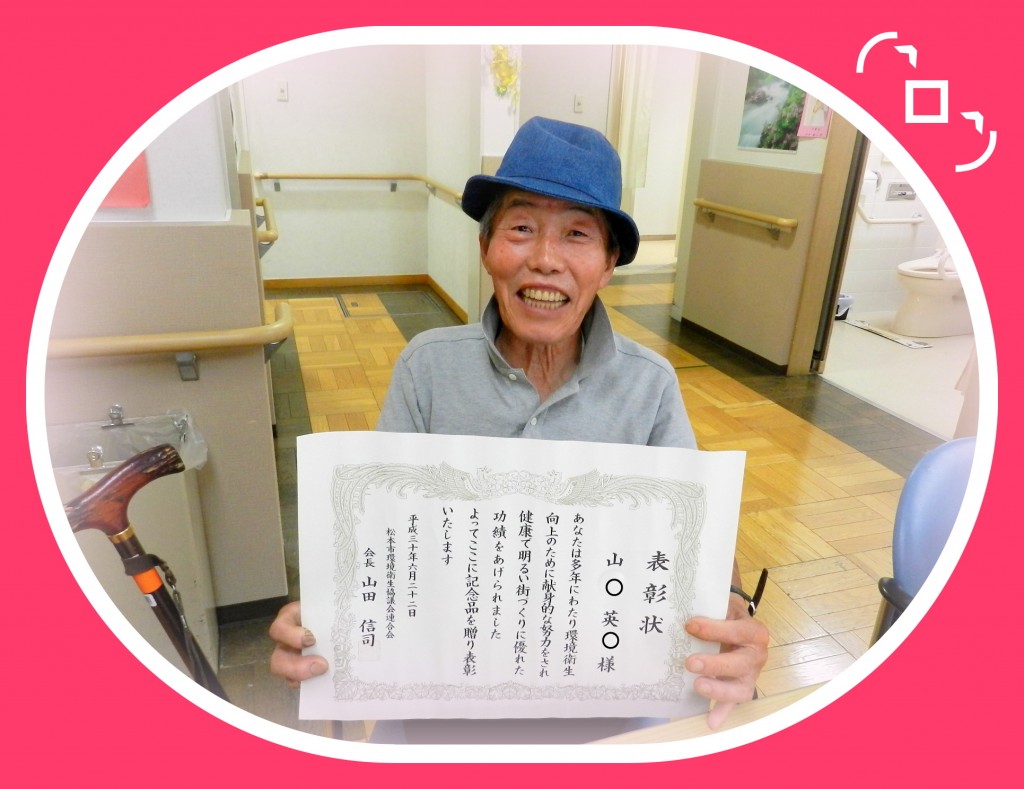 表彰状
山〇英〇様
あなたは多年にわたり環境衛生
向上のために献身的な努力をされ
健康で明るい街づくりに優れた
功績をあげられました
よってここに記念品を贈り表彰
いたします
平成三十年六月二十二日
松本市環境衛生協議会連合会
会長 山田 信司